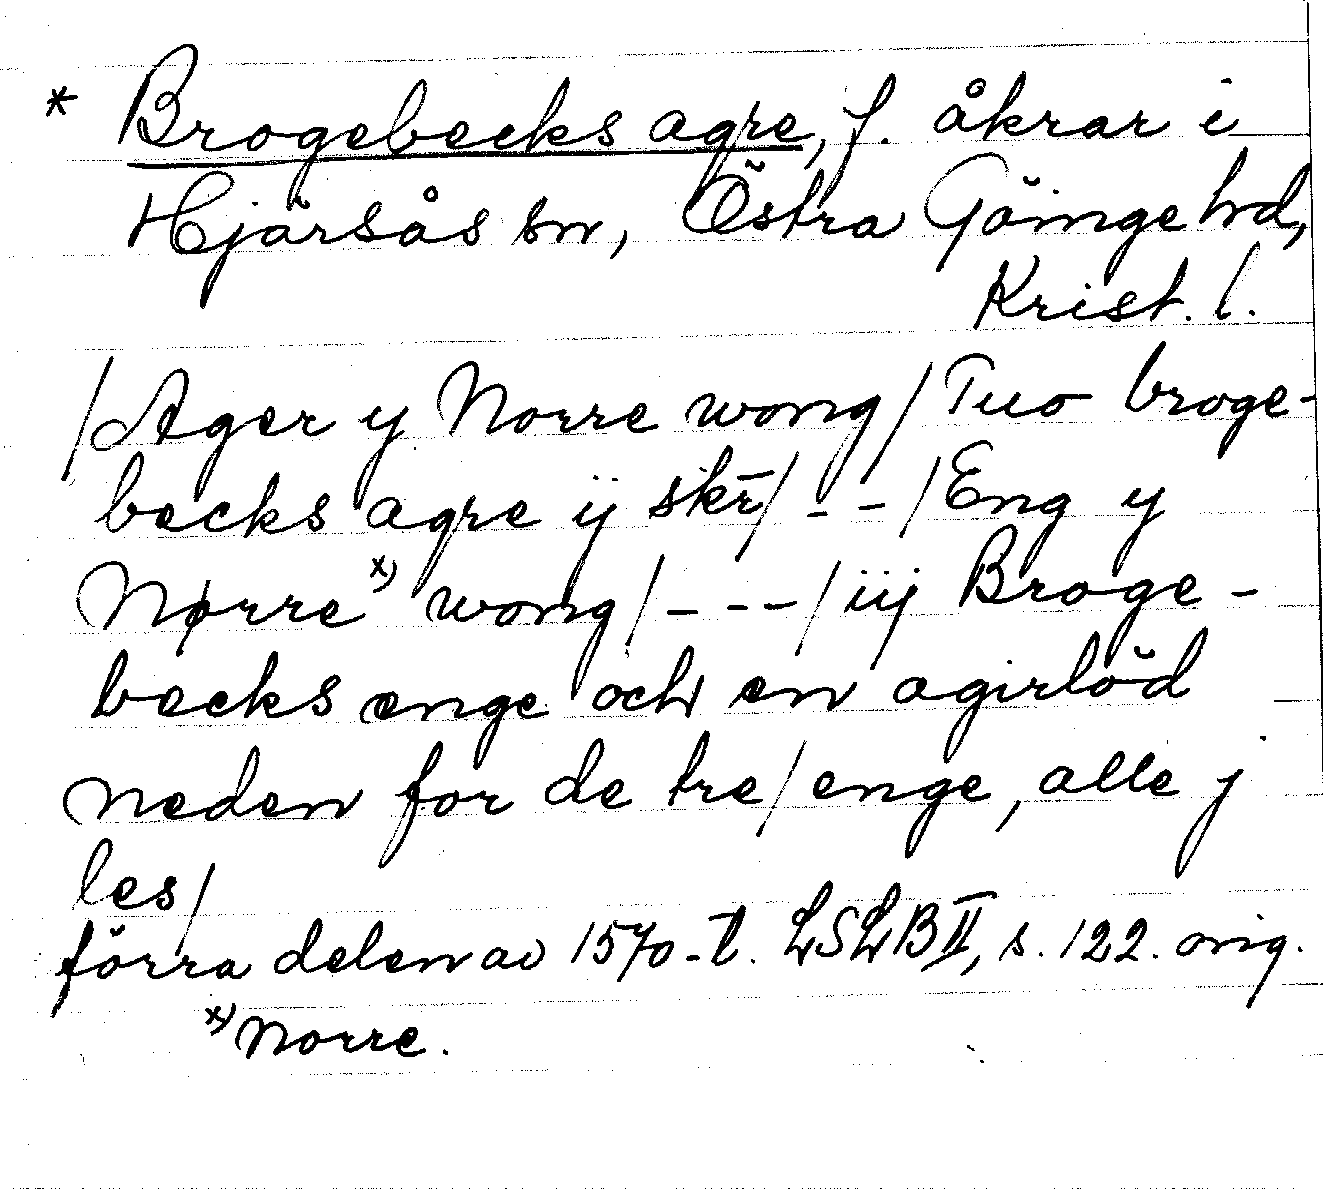 * Brogebecks agre, f. åkrar i
Hjärsås sn, Östra Göinge hd,
Krist. l.
/Ager y Norre wong/Tuo broge-
becks agre ij skr̄/ - - /Eng y
Nørre x) wong/ - - - / iij Broge-
becks enge och en agirlöd
neden for de tre/enge, alle j
les/
förra delen av 1570-t. LSLB II, s. 122. orig.
x) Norre.